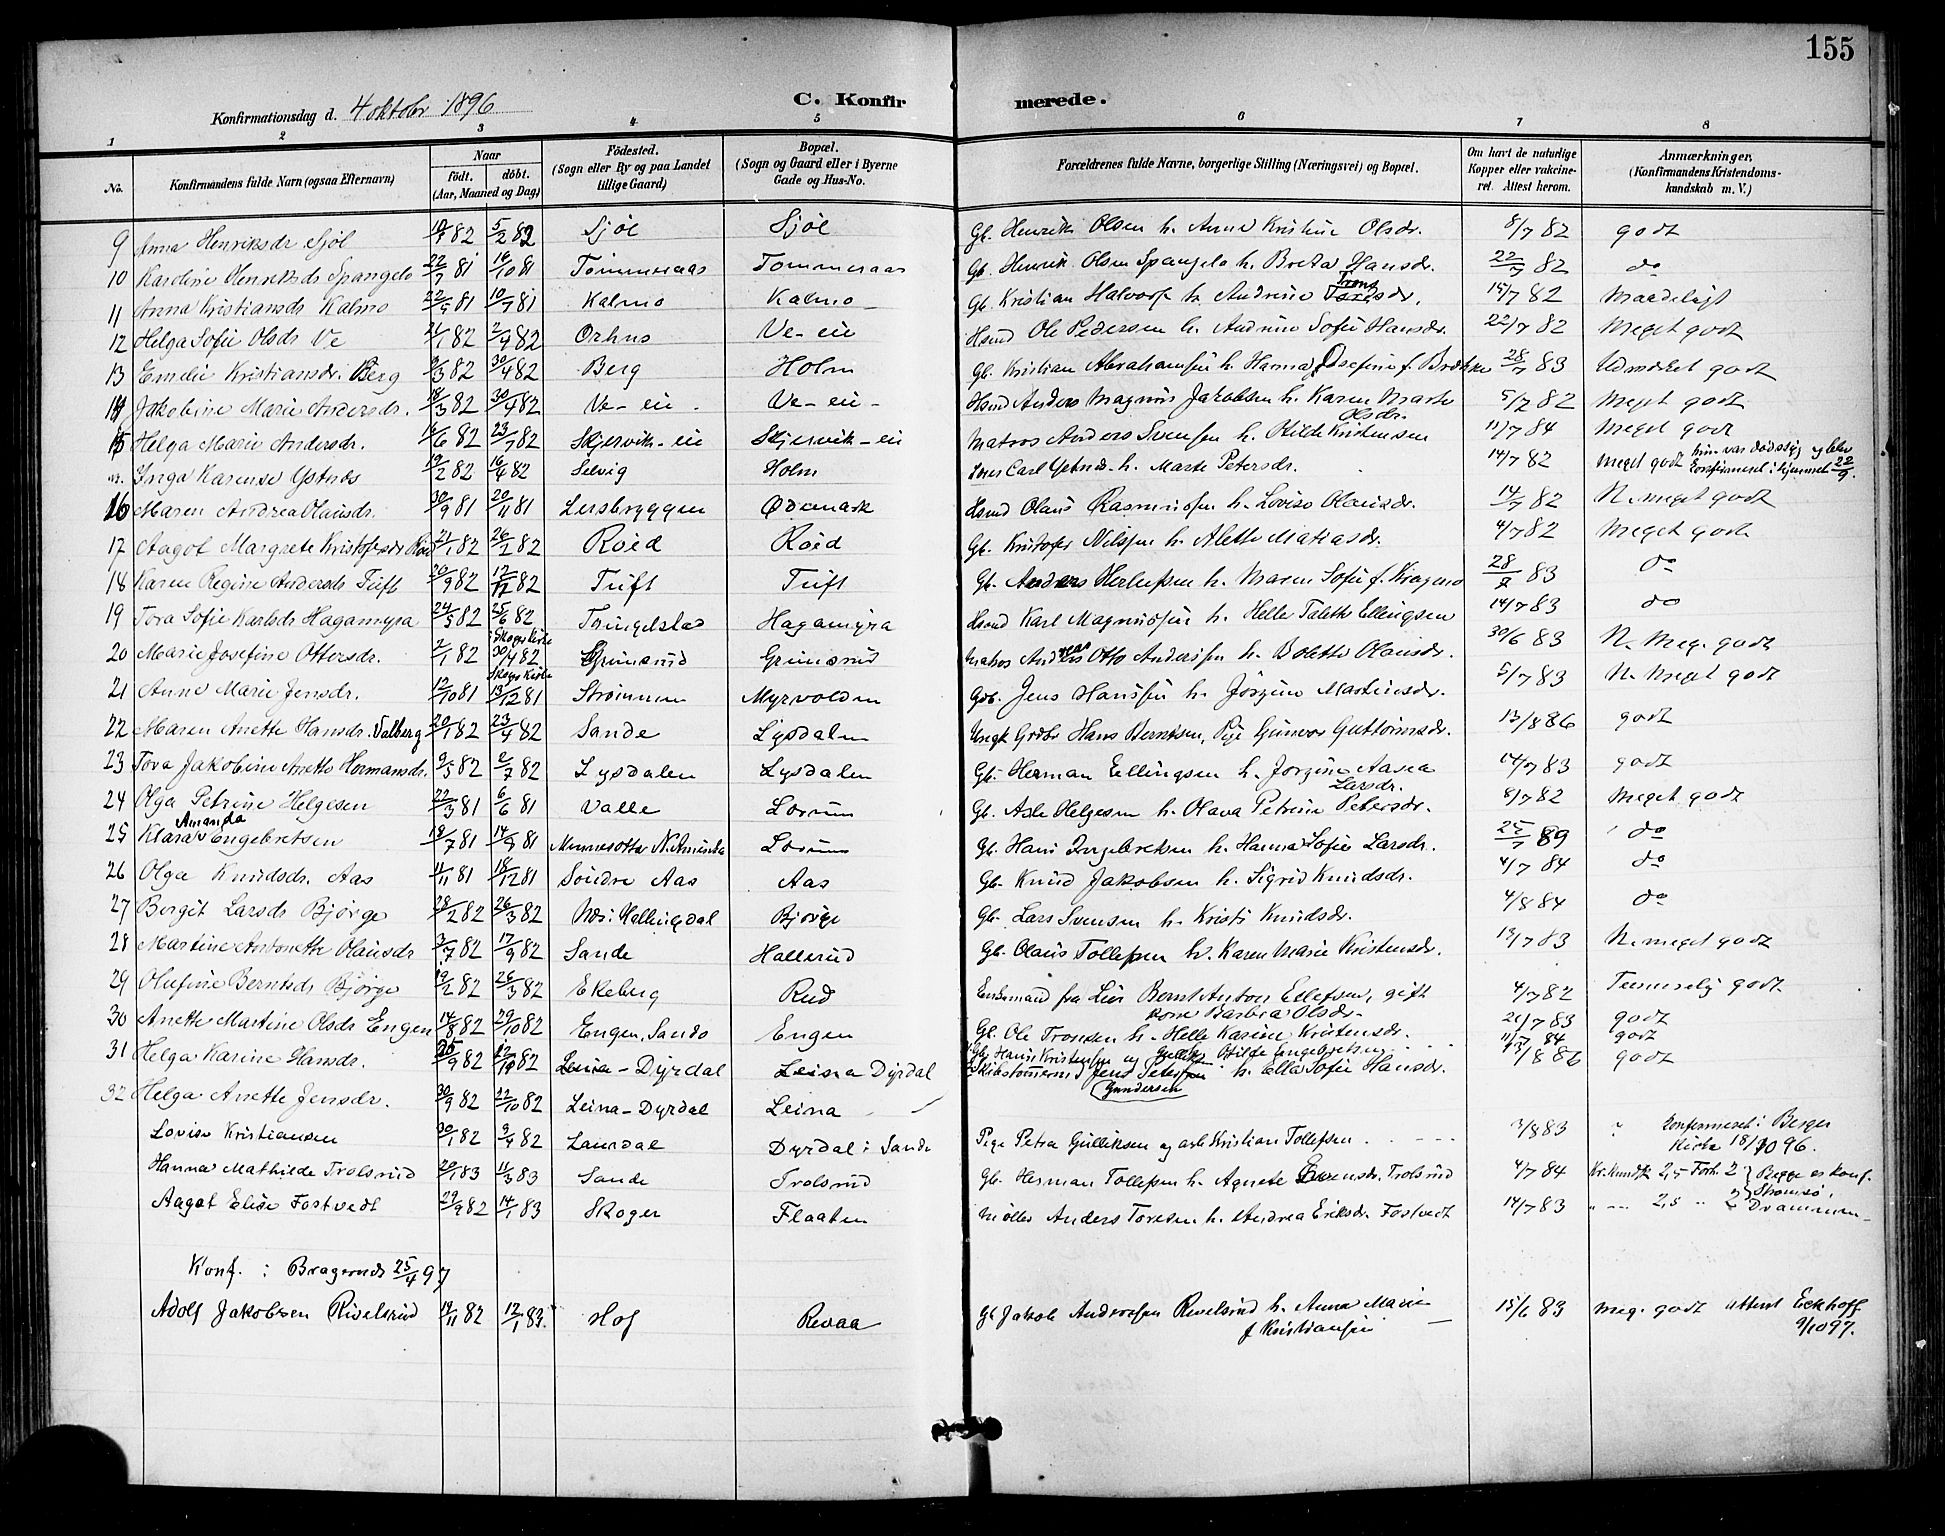 155
Konfirmationsdag d. 4 oktobr 1896
C. Konfirmerede.
1 2 3 4 5 6 7 8
No. Konfirmandens fulde Navn (ogsaa Efternavn) Naar født. døbt. (Aar, Maaned og Dag) Födested. (Sogn eller By og paa Landet tillige Gaard) Bopæl. (Sogn og Gaard eller i Byerne Gade og Hus-No. Forældrenes fulde Navne, borgerlige Stilling (Næringsvei) og Bopæl. Om havt de naturlige Kopper eller vakcineret. Attest herom. Anmærkninger, (Konfirmandens Kristendomskundskab m. V.)
9 Anna Henriksdr Sjöl 82 5/2 82 Sjöl Sjöl Gb. Henrik Olsen h. Anne Kristine Olsdr. 8/7 82 godt
10 Karoline Henriksdr Spangelo 22/7 81 16/10 81 Tommeraas Tommeraas Gb. Henrik Olsen Spangelo h. Breta Hansdr. 22/7 82 do
11 Anna Kristiansdr Kalmo 22/5 81 10/7 81 Kalmo Kalmo Gb. Kristian Halvors. h. Andrine Tronsdr. 15/7 82 Maadeligt
12 Helga Sofie Olsdr Ve 21/1 82 2/4 82 Orhus Ve-eie Hsmd Ole Pedersen h. Andrine Sofie Hansdr. 22/7 82 Meget godt
13 Emelie Kristiansdr. Berg 9/3 82 30/4 82 Berg Holm Gb. Kristian Abrahamsen h. Hanna Josefine f. 28/7 83 Udmærket godt
14 Jakobine Marie Andersdr. 18/3 82 30/4 82 Ve-eie Ve-eie Hsmd Anders Magnus Jakobsen h. Karen Marte Olsdr. 5/7 82 Meget godt
15 Helga Marie Andersdr. 82 23/7 82 Skjervik-eie Skjervik-eie Matros Anders Svensen h. Otilde Kristensen 11/7 84 Meget godt
Inga Karense Ystnes 19/2 82 16/4 82 Selvig Holm Carl Ystnes h. Marte Petersdr. 14/7 82 Meget godt hun var dødssyg og blev konfirmeret i hjemmet 22/9.
16 Maren Andrea Olausdr. 30/9 81 20/11 81 Lersbryggen Ødemark Hsmd Olaus Rasmussen h. Lovise Olausdr. 14/7 82 N. meget godt
17 Aagot Margrete Kristofersdr Röed 21/1 82 26/2 82 Röed Röed Gb. Kristofer Nilssen h. Alette Matiasdr. 4/7 82 Meget godt
18 Karen Regine Andersdr Tuft 20/9 82 17/12 82 Tuft Tuft Gb. Anders Herlufsen h. Maren Sofie f. Kragerö 28/7 83 do
19 Tora Sofie Karlsdr Hagamyra 24/3 82 25/6 82 Tringelstad Hagamyra Hsmd Karl Magnussen h. Helle Talette Ellingsen 14/7 83 do
20 Marie Josefine Ottersdr. 2/1 82 Skoger Kirke 30/4 82 Grimsrud Grimsrud Matros Andreas Otto Anderssen h. Bolette Olausdr. 30/6 83 N. Meg. godt
21 Anne Marie Jensdr. 12/10 81 Skoger Kirke 13/12 81 Strömmen Myrvolden Gdb. Jens Hanssen h. Jörgine Martinsdr. 5/7 83 N. Meget godt
22 Maren Anette Hansdr. Valberg 20/1 82 23/4 82 Sande Lysdalen Ungk Grdbr Hans Berntsen, Pige Gunvor Guttormsdr. 13/8 86 godt
23 Tora Jakobine Anette Hermansdr. 9/5 82 2/7 82 Lysdalen Lysdalen Gb. Herman Ellingsen h. Jorgine Aasea Larsdr. 14/7 83 godt
24 Olga Petrine Helgesen 22/3 81 6/6 81 Valle Lorum Gb. Asle Helgesen h. Olava Petrine Petersdr. 8/7 82 Meget godt
25 Klara Amanda Engebretsen 18/7 81 14/9 81 Minnesotta N. Amerika Lorum Gb. Hans Ingebretsen h. Hanna Sofie Larsdr. 25/7 89 do
26 Olga Knudsdr. Aas 1/11 81 18/12 81 Söndre Aas Aas Gb. Knud Jakobsen h. Sigrid Knudsdr. 4/7 84 do
27 Bergit Larsdr Björge 28/2 82 26/3 82 Nes i Hallingdal Björge Gb. Lars Svensen h. Kristi Knudsdr. 4/8 84 do
28 Martine Antonette Olausdr 3/7 82 17/9 82 Sande Hallerud Gb. Olaus Tollefsen h. Karen Marie Kristensdr. 13/7 83 N. meget godt
29 Olufine Berntsdr Björge 19/2 82 26/3 82 Ekeberg Rud Enkemand fra Lier Bernt Anton Ellefsen, gift Barbra Olsdr. 4/7 82 Temmelig godt
30 Anette Martine Olsdr Engen 14/8 82 29/10 82 Engen, Sande Engen Gb. Ole Tronsen h. Helle Karine Kristensdr. 21/7 83 godt
31 Helga Karine Hansdr. 25/9 82 82 Leina-Dyrdal Leina Dyrdal Gb. Hans Kristensen og Otilde Engebretsen 11/7 84 godt
32 Helga Anette Jensdr. 30/9 82 22/10 82 Leina-Dyrdal Leina Skibstömmermd Jens Petersen Gundersen h. Ella Sofie Hansdr. 8 86 godt
Lovise Kristiansen 30/1 82 9/4 82 Laurdal Dyrdal i Sande Pige Petra Gulliksen og arb Kristian Tollefsen 3/8 83 " Konfirmeret i Berger Kirke 18/10 96.
Hanna Mathilde Trolsrud 20/1 83 11/3 83 Sande Trolsrud Gb. Herman Tollefsen h. Agnete Sörensdr. Trolsrud 4/7 84 Kr. kundsk 2,5 Forh. 2 } Begge er konf.
Aagot Elise Fostvedt 29/9 82 14/1 83 Skoger Flaaten Möller Anders Toresen h. Andrea Eriksdr. Fostvedt 14/7 83 " 2,5 " 2 } Strömsö, Drammen
Konf. i Bragernes 25/4 97
Adolf Jakobsen Rivelsrud 14/11 82 12/1 83 Hof Revaa Gb Jakob Anderssen Revelsrud h. Anna Marie f Kristiansen 15/6 83 Meg. godt attest Eckhoff 9/10 97.